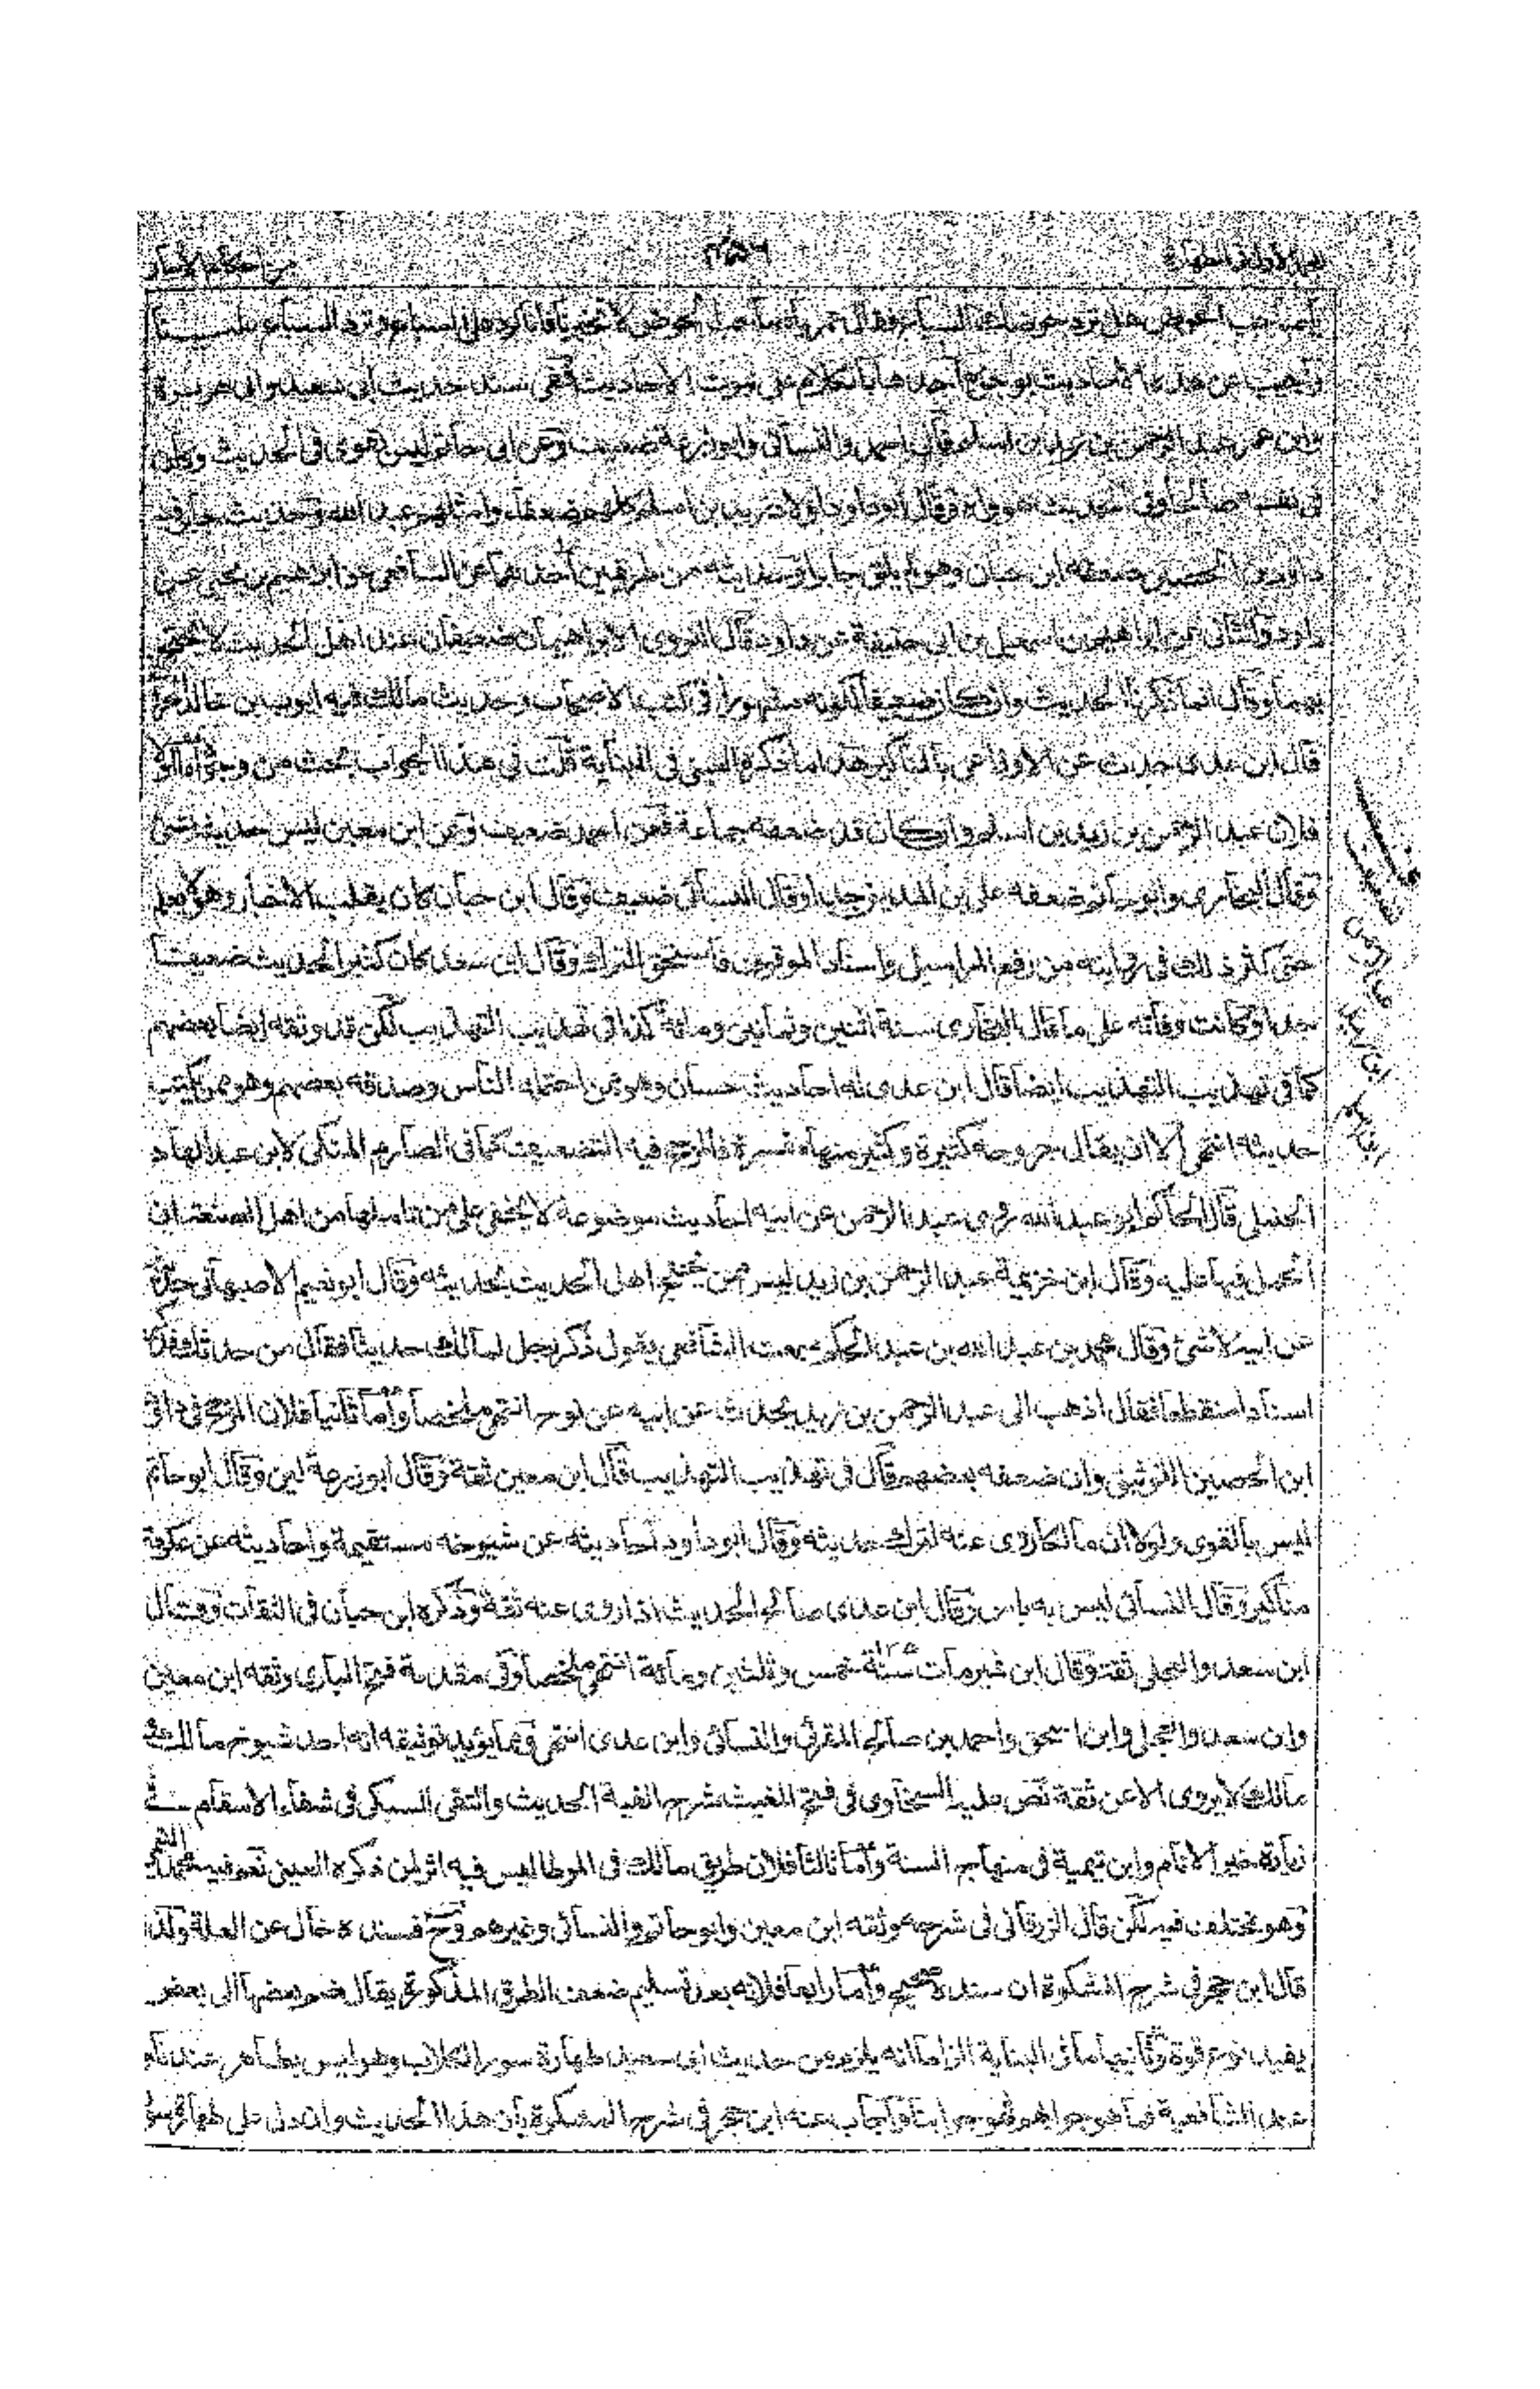 يا صاحب الحوض هل ترد حوضك السباع فقال عمر يا صاحب الحوض لا تخبرنا فانا نرد على السباع وترد السباع علينا
واجيب عن هذه الاحاديث بوجوه احدها بالكلام على ثبوت الاحاديث ففي سند حديث ابي سعيد وابي هريرة
وابن عمر عبد الرحمن بن زيد بن اسلم قال احمد والنسائى وابو زرعة ضعيف وعن ابى حاتم ليس بقوى فى الحديث وكان
فى نفسه صالحا وفى الحديث واه وقال ابو داود اولاد زيد بن اسلم كلهم ضعفاء وامثلهم عبد الله وحديث جابر فيه
داود بن الحصين ضعفه ابن حبان وهو لم يلق جابرا وحديثه من طريقين احدهما عن الشافعى عن ابراهيم بن يحيى عن
داود والثانى عن ابراهيم بن اسمعيل بن ابى حبيبة عن داود قال النووى الابراهيمان ضعيفان عند اهل الحديث لا يحتج
بهما وقال انما ذكرنا الحديث وان كان ضعيفا لكونه مشهورا فى كتب الاصحاب وحديث مالك فيه ايوب بن خالد الحرانى
قال ابن عدى حدث عن الاوزاعى بالمناكير هذا ما ذكره العينى فى البناية قلت فى هذا الجواب بحث من وجوه اما اولا
فلان عبد الرحمن بن زيد بن اسلم وان كان قد ضعفه جماعة فعن احمد ضعيف وعن ابن معين ليس حديثه بشئ
وقال البخارى وابو حاتم ضعفه على بن المدينى جدا وقال النسائى ضعيف وقال ابن حبان كان يقلب الاخبار وهو لا يعلم
حتى كثر ذلك فى روايته من رفع المراسيل واسناد الموقوف فاستحق الترك وقال ابن سعد كان كثير الحديث ضعيفا
جدا وكانت وفاته على ما قال البخارى سنة اثنين وثمانين ومائة كذا فى تهذيب التهذيب لكن قد وثقه ايضا بعضهم
كما فى تهذيب التهذيب ايضا قال ابن عدى له احاديث حسان وهو ممن احتمله الناس وصدقه بعضهم وهو من يكتب
حديثه انتهى الا ان يقال جروحه كثيرة وكثير منها مفسرة فالمرجح فيه التضعيف كما فى الصارم المنكى لابن عبد الهادى
الحنبلى قال الحاكم ابو عبد الله روى عبد الرحمن عن ابيه احاديث موضوعة لا يخفى على من تاملها من اهل الصنعة ان
الحمل فيها عليه وقال ابن خزيمة عبد الرحمن بن زيد ليس ممن يحتج اهل الحديث بحديثه وقال ابو نعيم الاصبهانى حدث
عن ابيه لا شئ وقال محمد بن عبد الله بن عبد الحكم سمعت الشافعى يقول ذكر رجل لمالك حديثا فقال من حدثك فذكر
اسنادا منقطعا فقال اذهب الى عبد الرحمن بن زيد يحدثك عن ابيه عن نوح انتهى ملخصا واما ثانيا فلان المرجح فى داود
ابن الحصين التوثيق وان ضعفه بعضهم قال فى تهذيب التهذيب قال ابن معين ثقة وقال ابو زرعة لين وقال ابو حاتم
ليس بالقوى ولولا ان مالكا روى عنه لترك حديثه وقال ابو داود احاديثه عن شيوخه مستقيمة واحاديثه عن عكرمة
مناكير وقال النسائى ليس به باس وقال ابن عدى صالح الحديث اذا روى عنه ثقة وذكره ابن حبان فى الثقات وقال
ابن سعد والعجلى ثقة وقال ابن نمير مات سنة ١٣٥ خمس وثلثين ومائة انتهى ملخصا وفى مقدمة فتح البارى وثقه ابن معين
وابن سعد والعجلى وابن اسحق واحمد بن صالح المقرئ والنسائى وابن عدى انتهى ومما يؤيد توثيقه انه احد شيوخ مالك و
مالك لا يروى الا عن ثقة نص عليه السخاوى فى فتح المغيث شرح الفية الحديث والتقى السبكى فى شفاء الاسقام فى
زيارة خير الانام وابن تيمية فى منهاج السنة واما ثالثا فلان طريق مالك فى الموطا ليس فيه اثر لمن ذكره العينى نعم فيه محمد
وهو مختلف فيه لكن قال الزرقانى فى شرحه وثقه ابن معين وابو حاتم والنسائى وغيرهم وح فسنده خال عن العلة ولذا
قال ابن حجر فى شرح المشكوة ان سنده صحيح واما رابعا فلانه بعد تسليم ضعف الطرق المذكورة يقال ضم بعضها الى بعض
يفيد نوع قوة وثانيها ما فى البناية الزاما انه يلزم من حديث ابى سعيد طهارة سور الكلاب وهو ليس بطاهر عندنا و
عند الشافعية فما هو جوابهم فهو جوابنا واجاب عنه ابن حجر فى شرح المشكوة بان هذا الحديث وان دل على طهارة سؤر